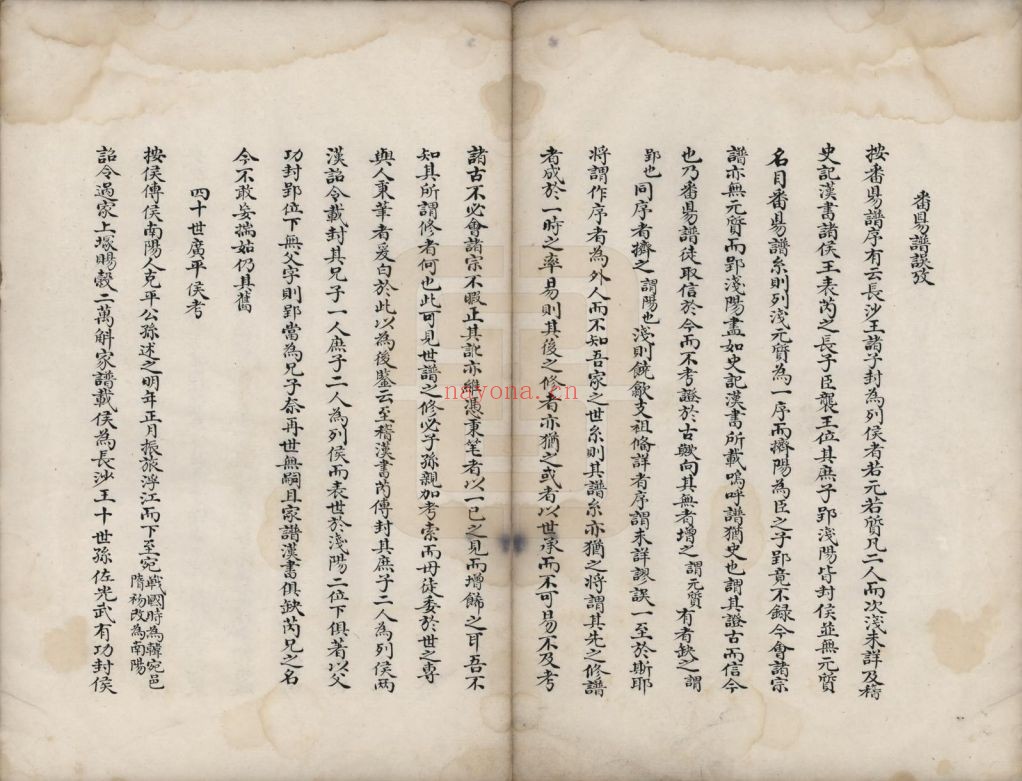 番昜譜誤攷
按番昜譜序有云長沙王諸子封為列侯者若元若質凡二人而次淺未詳及稽
史記漢書諸侯王表芮之長子臣襲王位其庶子郢淺陽皆封侯並無元質
名目番昜譜系則列淺元質為一序而擠陽為臣之子郢竟不録今會諸宗
譜亦無元質而郢淺陽盡如史記漢書所載嗚呼譜猶史也謂其證古而信今
也乃番昜譜徒取信於今而不考證於古輙向其無者增之謂元質有者缺之謂
郢也同序者擠之謂陽也淺則饒歙支祖脩詳者序謂未詳謬誤一至於斯耶
將謂作序者為外人而不知吾家之世系則其譜系亦猶之將謂其先之修譜
者成於一時之率易則其後之修者亦猶之或者以世承而不可易不及考
諸古不必會諸宗不暇正其訛亦維憑秉笔者以一己之見而增餙之耳吾不
知其所謂修者何也此可見世譜之修必子孫親加考索而毋徒委於世之專
與人秉筆者爰白於此以為後鑒云至稽漢書芮傳封其庶子二人為列侯两
漢詔令載封其兄子一人庶子二人為列侯而表世於淺陽二位下俱著以父
功封郢位下無父字則郢當為兄子奈再世無嗣且家譜漢書俱缺芮兄之名
今不敢妄揣姑仍其舊
四十世廣平侯考
按侯傳侯南陽人克平公孫述之明年正月振旅浮江而下至宛戰國時為韓宛邑隋初改為南陽
詔令過家上塚賜穀二萬斛家譜載侯為長沙王十世孫佐光武有功封侯
nayona.cn